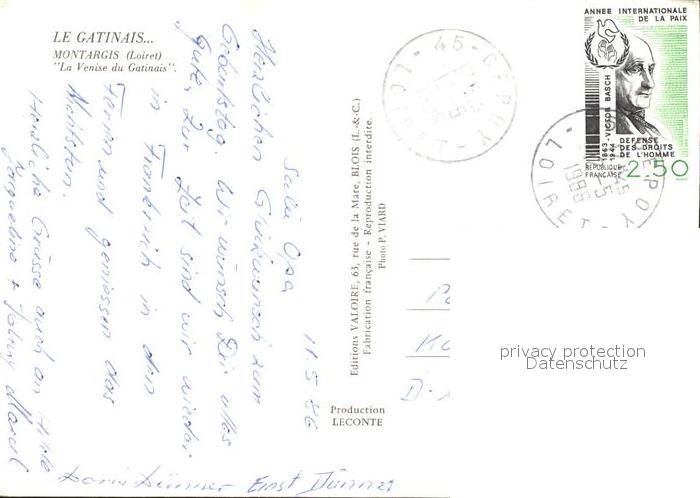 LE GATINAIS...
MONTARGIS (Loiret)
"La Venise du Gatinais".
11.5.86
Salü Opa
Herzlichen Glückwunsch zum
Geburtstag. Wir wünsch Dir alles
gute. Zur Zeit sind wir wieder
in Frankreich in den
Ferien und geniessen das
Herzliche Grüsse auch an
Jaqueline +
Ernst Dünner
Editions VALOIRE, 63, rue de la Mare, BLOIS (L.-&-C.)
Fabrication française - Reproduction interdite.
Photo P. VIARD
Production
LECONTE
45-CEPOY
LOIRET
ANNEE INTERNATIONALE
DE LA PAIX
1863 - VICTOR BASCH - 1944
DEFENSE
DES DROITS
DE L'HOMME
REPUBLIQUE
FRANÇAISE
2.50
CEPOY
LOIRET
1986
D-
privacy protection
Datenschutz